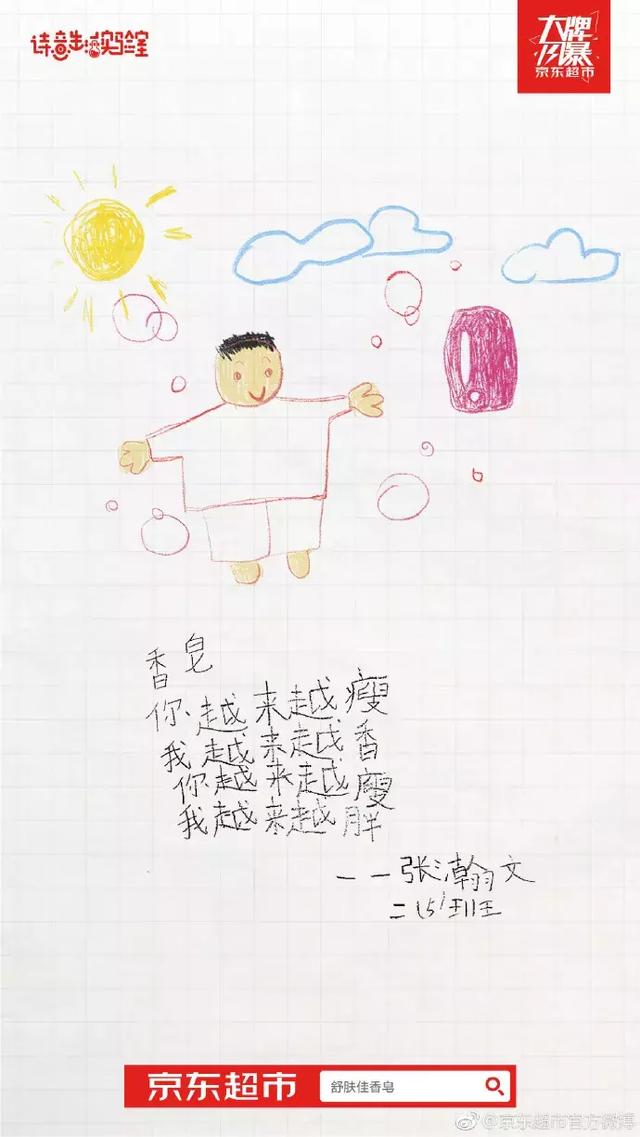 诗意生活实验室
大牌
风暴
京东超市
香皂
你越来越瘦
我越来越香
你越来越瘦
我越来越胖
——张瀚文
二(5)班
京东超市
舒肤佳香皂
@京东超市官方微博